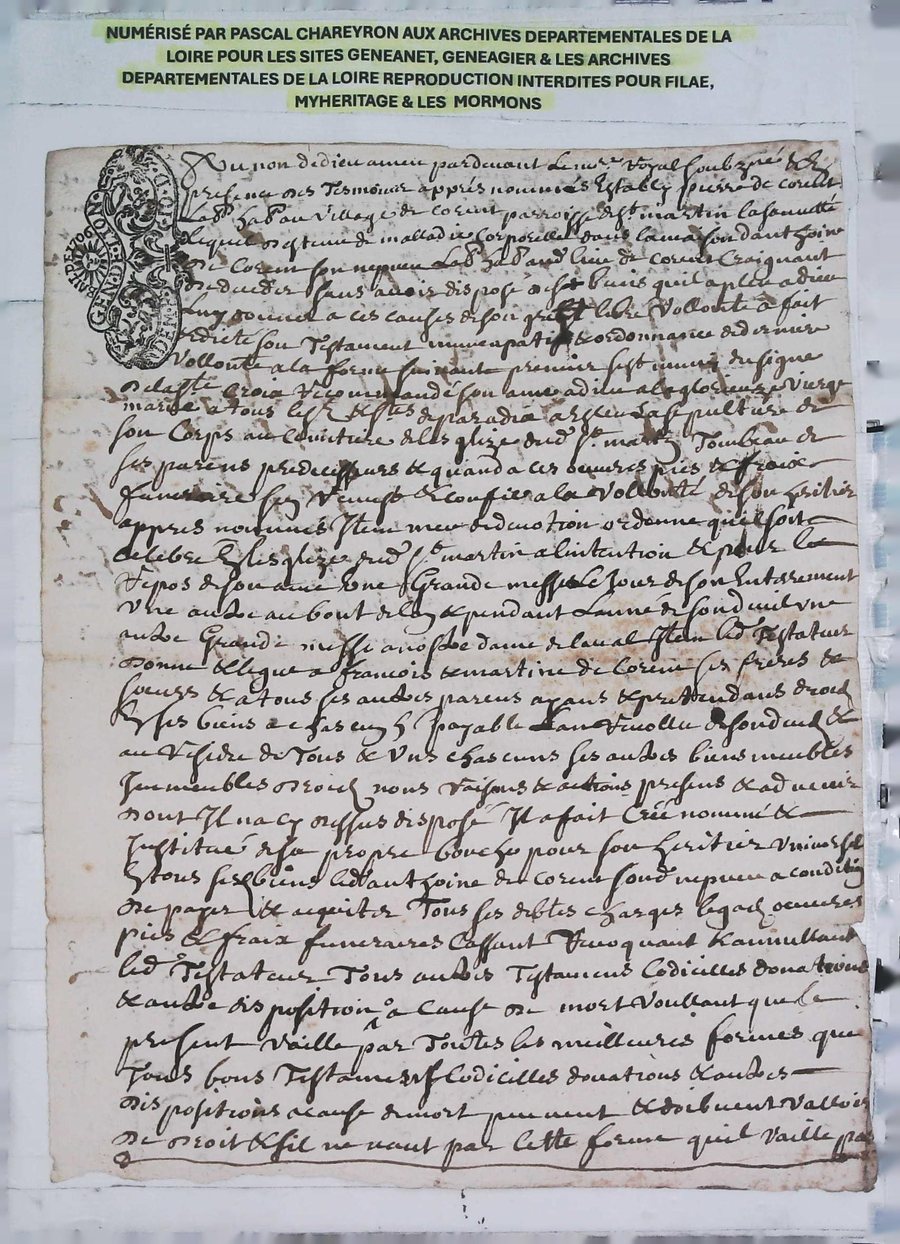 NUMÉRISÉ PAR PASCAL CHAREYRON AUX ARCHIVES DEPARTEMENTALES DE LA
LOIRE POUR LES SITES GENEANET, GENEAGIER & LES ARCHIVES
DEPARTEMENTALES DE LA LOIRE REPRODUCTION INTERDITES POUR FILAE,
MYHERITAGE & LES MORMONS
GEN. DE LION
Au non de dieu amen pardevant le no.re Royal soubzné & en
presence des Tesmoins apprés nommés Estably pierre de
hab. au village de parroisse de st martin la
lequel detenu de maladie Corporelle dans la maison danthoine
de son nepveu lab. hab. aud. lieu de Craignant
de deceder sans avoir disposé des biens quil a pleu a dieu
luy donner a ces causes de son gré & libre Vollonté a fait
& dicté son Testament nuncupatif & ordonnance de derniere
Vollonté a la forme suivante premier sest muni du signe
de la ste Croix Recommandé son ame a dieu a la glorieuze Vierge
marie a tous les sts & stes de paradis a esleu la sepulture de
son Corps au cimitiere de lesglize dud. st. martin Tombeau de
ses parens predecesseurs & quand a ces oeuvres pies & fraix
funeraire sen Remest & confie a la Vollonté de son heritier
appres nommés Item meu de devotion ordonne quil soit
celebré En lesglize dud. st. martin a lintention & pour le
Repos de son ame Une Grande messe le Jour de son Enterrement
Une autre au bout de lan & pendant lanné de son deuil une
autre Grande messe a nostre dame de laval Item led. Testateur
donne & legue a francois & martine de ses freres &
soeurs & a tous ses autres parens ayans & prettendans droict
En ses biens a chascun payable lan Revollu de son deceds &
au Residu de Tous & Uns chascuns ses autres biens meubles
Immeubles droicts noms Raisons & actions presens & advenir
dont Il na cy dessus disposé Il a fait Créé nommé &
Institué de sa propre bouche pour son heritier Universel
En tous ses biens led. anthoine de sond. nepveu a condition
de payer & acquiter Tous ses debtes charges legats oeuvres
pies & fraix funeraires Cassant Revoquant & annullant
led. Testateur Tous autres Testamens Codicilles donations
& autre disposition a Cause de mort Voullant que le
present Vaille par Toutes les meilleures formes que
Tous bons Testamens Codicilles donations & autres
dispositions a cause de mort peuvent & doibvent Valloir
de droit & sil ne vaut par cette forme quil Vaille par